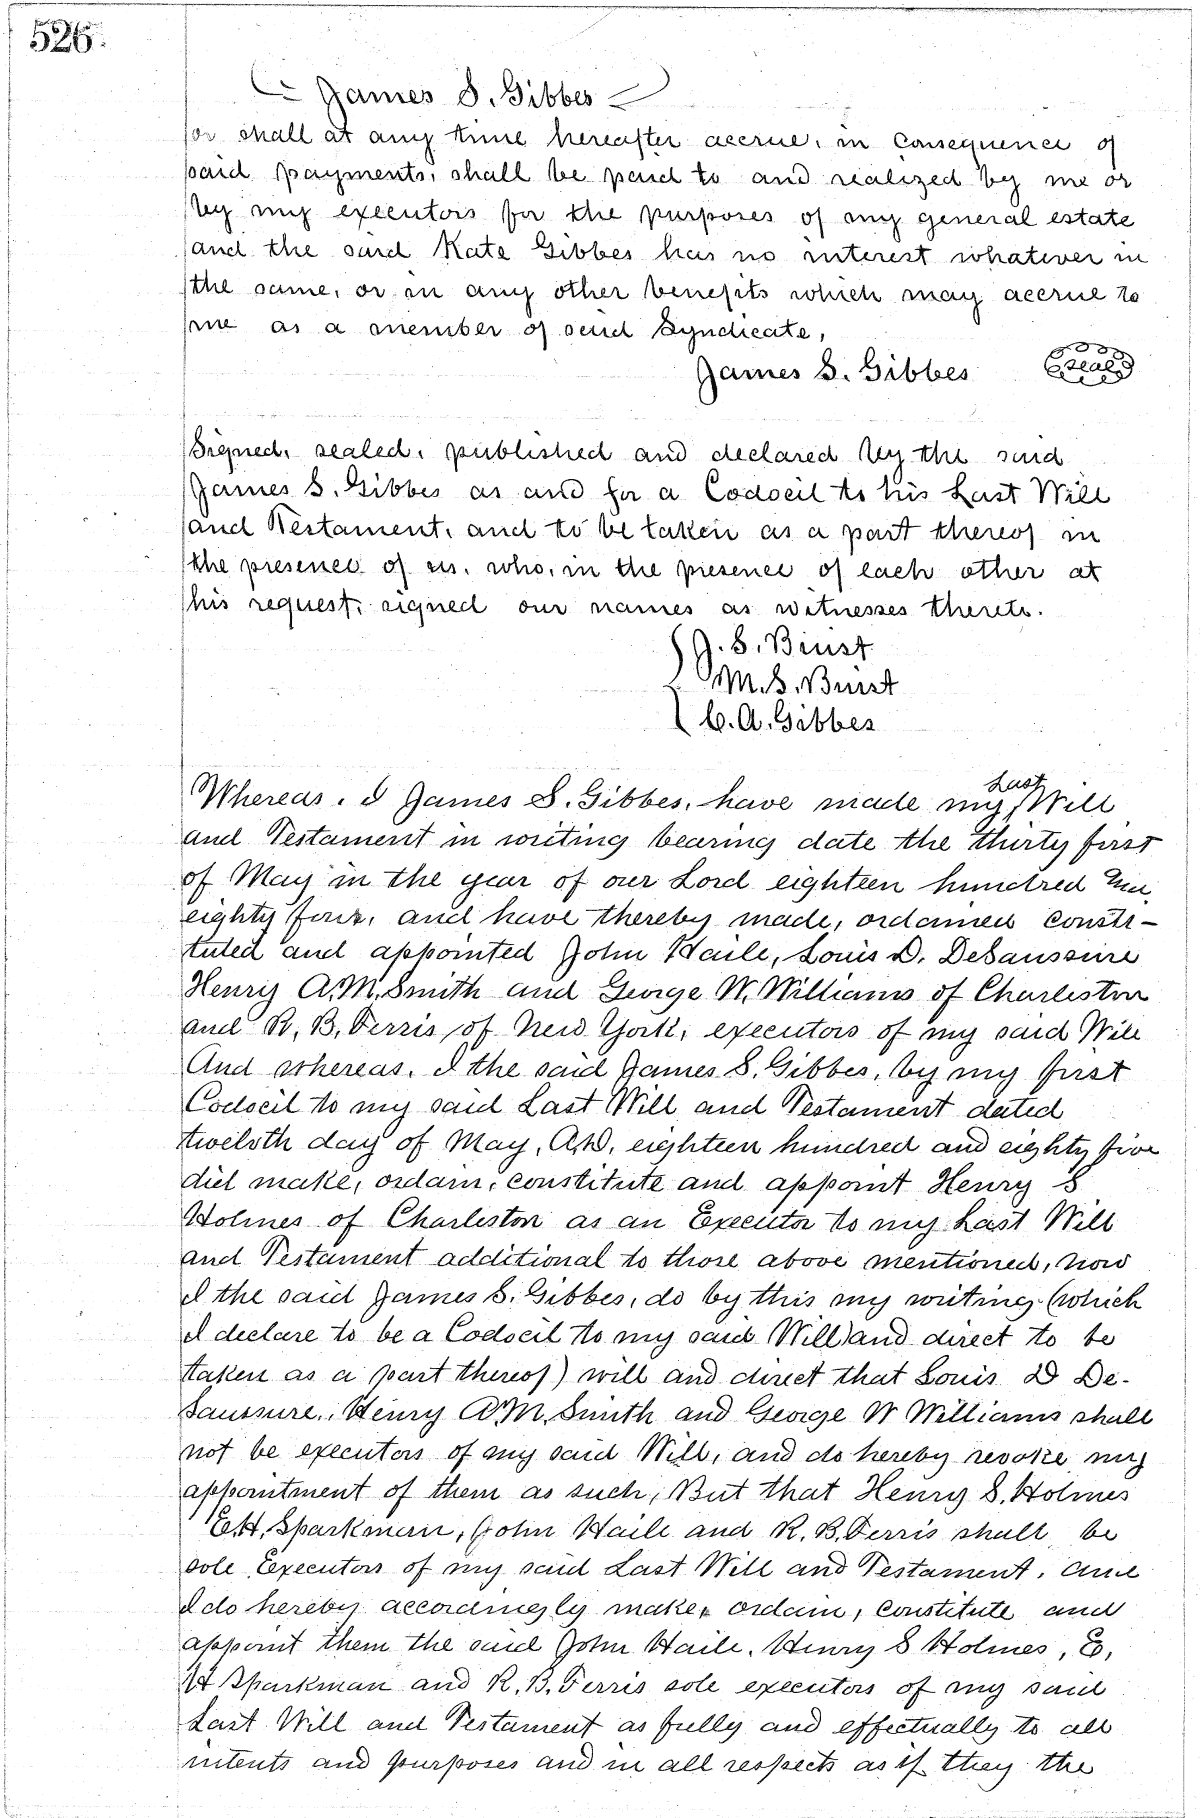 526.
James S. Gibbes
or shall at any time hereafter accrue, in consequence of
said payments, shall be paid to and realized by me or
by my executors for the purposes of my general estate
and the said Kate Gibbes has no interest whatever in
the same, or in any other benefits which may accrue to
me as a member of said Syndicate,
James S. Gibbes (Seal)
Signed, sealed, published and declared by the said
James S. Gibbes as and for a Codocil to his Last Will
and Testament, and to be taken as a part thereof in
the presence of us, who, in the presence of each other at
his request, signed our names as witnesses thereto.
G. S. Buist
M. S. Buist
C. A. Gibbes
Whereas, I James S. Gibbes, have made my Last Will
and Testament in writing bearing date the thirty first
of May in the year of our Lord eighteen hundred
eighty four, and have thereby made, ordained consti-
tuted and appointed John Haile, Louis D. DeSaussure
Henry A. M. Smith and George W. Williams of Charleston
and R. B. Ferris of New York, executors of my said Will
And whereas, I the said James S. Gibbes, by my first
Codocil to my said Last Will and Testament dated
twelvth day of May, A.D. eighteen hundred and eighty five
did make, ordain, constitute and appoint Henry S
Holmes of Charleston as an Executor to my Last Will
and Testament additional to those above mentioned, now
I the said James S. Gibbes, do by this my writing (which
I declare to be a Codocil to my said Will) and direct to be
taken as a part thereof) will and direct that Louis D De-
Saussure, Henry A. M. Smith and George W Williams shall
not be executors of my said Will, and do hereby revoke my
appointment of them as such, But that Henry S. Holmes
E. H. Sparkman, John Haile and R. B. Ferris shall be
sole Executors of my said Last Will and Testament, and
I do hereby accordingly make, ordain, constitute and
appoint them the said John Haile, Henry S Holmes, E,
H Sparkman and R. B. Ferris sole executors of my said
Last Will and Testament as fully and effectually to all
intents and purposes and in all respects as if they the